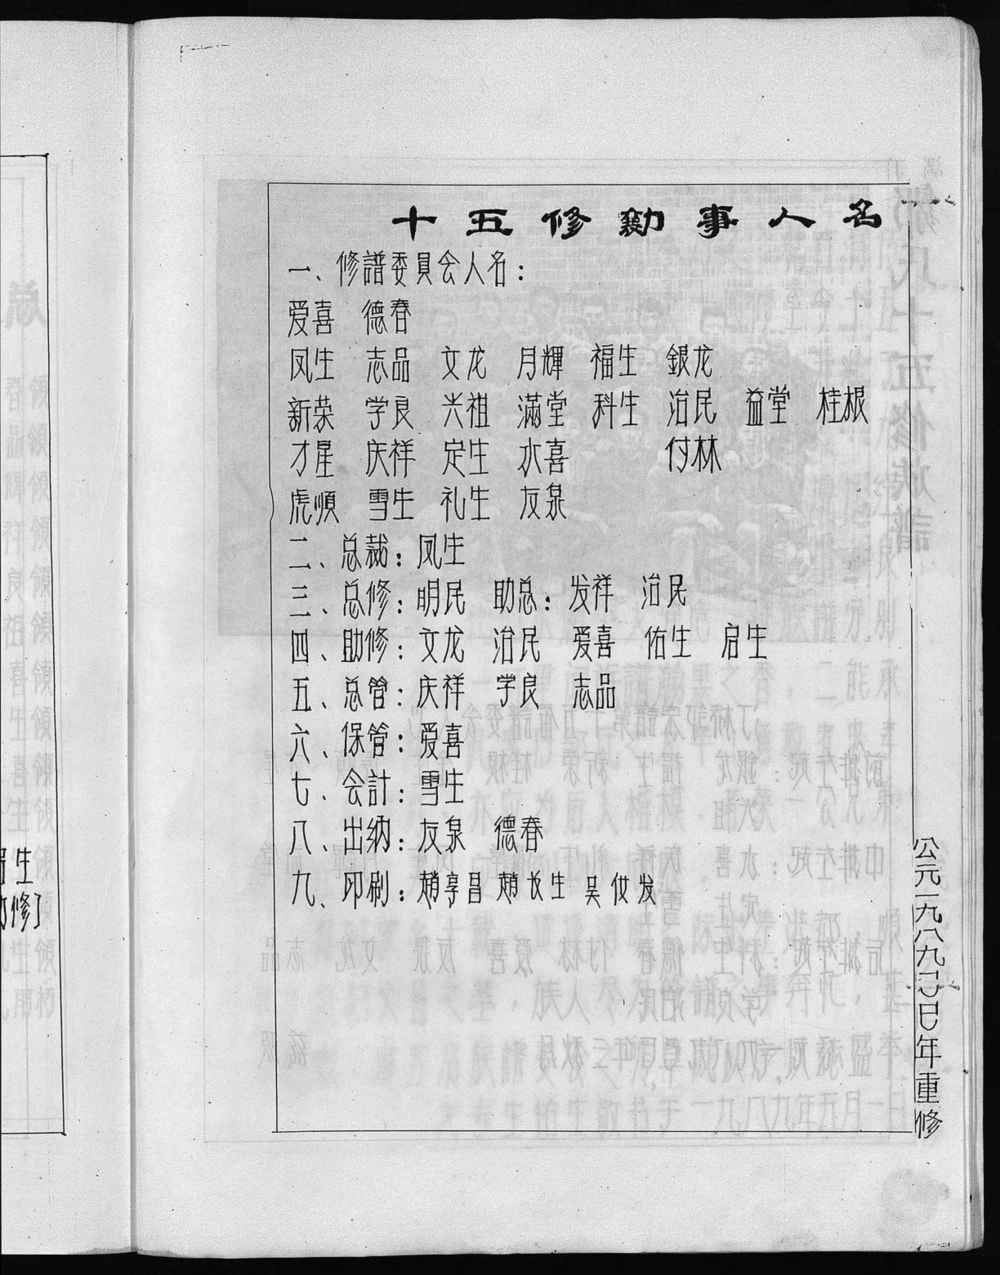 十五修勷事人名
一、修譜委員会人名：
爱喜 德春
凤生 志品 文龙 月輝 福生 銀龙
新荣 学良 兴祖 滿堂 科生 治民 益堂 桂根
才星 庆祥 定生 水喜 付林
虎順 雪生 礼生 友泉
二、总裁：凤生
三、总修：明民 助总：发祥 治民
四、助修：文龙 治民 爱喜 佑生 启生
五、总管：庆祥 学良 志品
六、保管：爱喜
七、会計：雪生
八、出納：友泉 德春
九、印刷：趙享昌 趙长生 吴仪发
公元一九八九己巳年重修